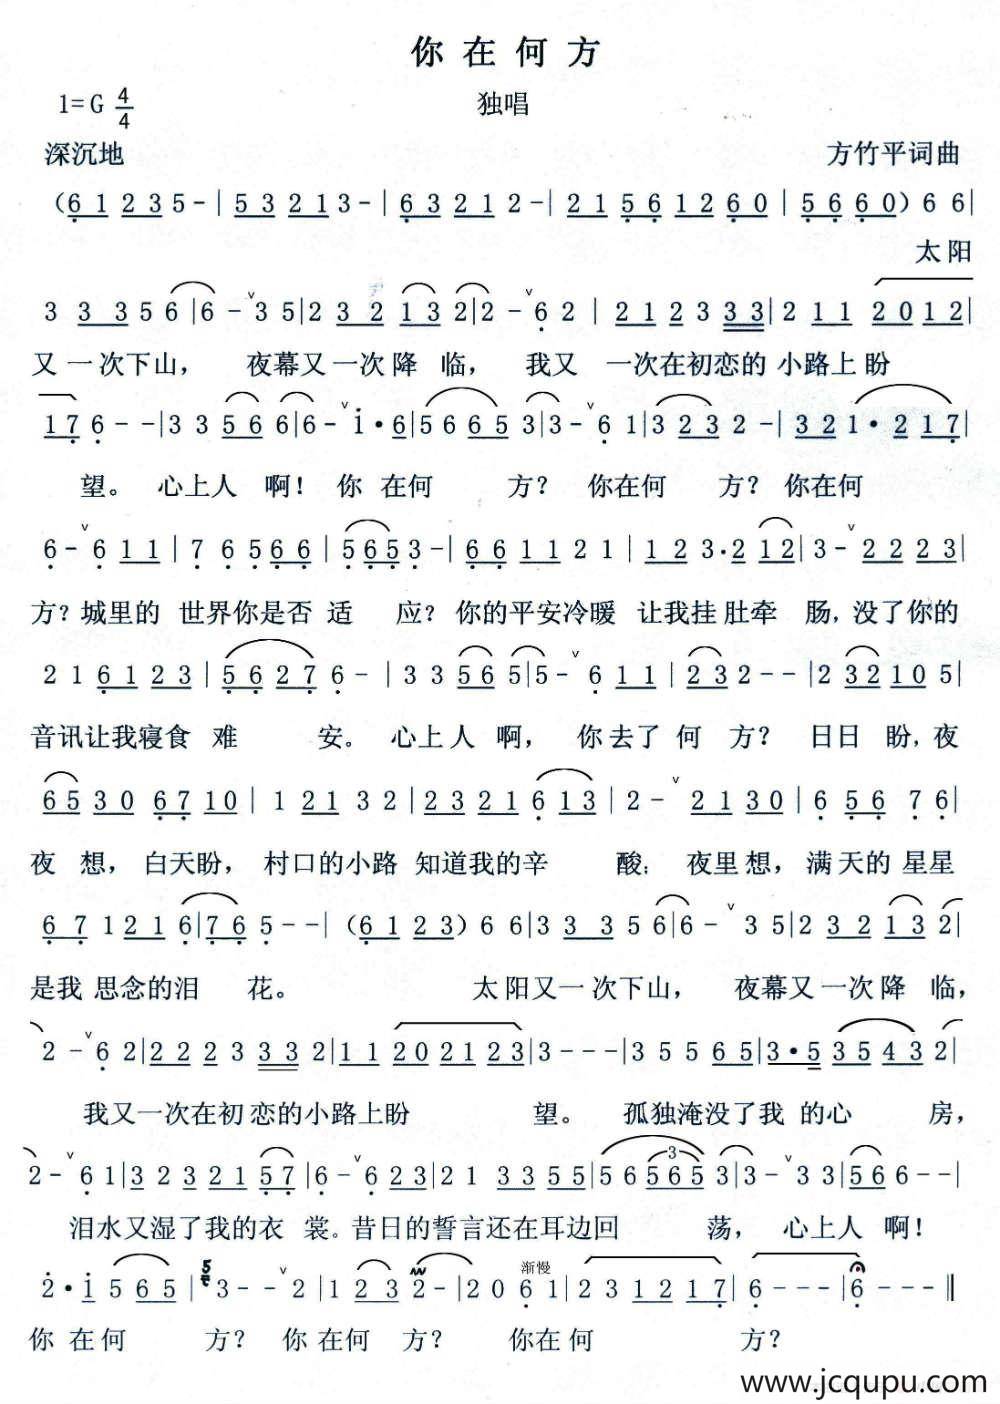 你在何方
独唱
1=G 4/4
深沉地
方竹平词曲
(6 1 2 3 5 - | 5 3 2 1 3 - | 6 3 2 1 2 - | 2 1 5 6 1 2 6 0 | 5 6 6 0) 6 6 |
太阳
3 3 3 5 6 | 6 - ∨ 3 5 | 2 3 2 1 3 2 | 2 - ∨ 6 2 | 2 1 2 3 3 3 | 2 1 1 2 0 1 2 |
又一次下山， 夜幕又一次降 临， 我又 一次在初恋的 小路上盼
1 7 6 - - | 3 3 5 6 6 | 6 - ∨ 1 · 6 | 5 6 6 5 3 | 3 - ∨ 6 1 | 3 2 3 2 - | 3 2 1 · 2 1 7 |
望。 心上人 啊！ 你 在何 方？ 你在何 方？ 你在何
6 - ∨ 6 1 1 | 7 6 5 6 6 | 5 6 5 3 - | 6 6 1 1 2 1 | 1 2 3 · 2 1 2 | 3 - ∨ 2 2 2 3 |
方？城里的 世界你是否 适 应？ 你的平安冷暖 让我挂 肚牵 肠，没了你的
2 1 6 1 2 3 | 5 6 2 7 6 - | 3 3 5 6 5 | 5 - ∨ 6 1 1 | 2 3 2 - - | 2 3 2 1 0 5 |
音讯让我寝食 难 安。 心上人 啊， 你去了 何 方？ 日日 盼，夜
6 5 3 0 6 7 1 0 | 1 2 1 3 2 | 2 3 2 1 6 1 3 | 2 - ∨ 2 1 3 0 | 6 5 6 7 6 |
夜 想， 白天盼， 村口的小路 知道我的辛 酸； 夜里想， 满天的星星
6 7 1 2 1 6 | 7 6 5 - - | (6 1 2 3) 6 6 | 3 3 3 5 6 | 6 - ∨ 3 5 | 2 3 2 1 3 2 |
是我 思念的泪 花。 太阳又一次下山， 夜幕又一次降 临，
2 - ∨ 6 2 | 2 2 2 3 3 3 2 | 1 1 2 0 2 1 2 3 | 3 - - - | 3 5 5 6 5 | 3 · 5 3 5 4 3 2 |
我又一次在初恋的小路上盼 望。 孤独淹没了我 的心 房，
2 - ∨ 6 1 | 3 2 3 2 1 5 7 | 6 - ∨ 6 2 3 | 2 1 3 3 5 5 | 5 6 5 6 5 3 | 3 - ∨ 3 | 5 6 6 - - |
3
泪水又湿了我的衣 裳。昔日的誓言还在耳边回 荡， 心上人 啊！
2 · 1 5 6 5 | 5 3 - - ∨ 2 | 1 2 3 2 - | 2 0 6 1 | 2 3 1 2 1 7 | 6 - - - | 6 - - - ‖
渐慢
你 在何 方？ 你在何 方？ 你在何 方？
www.jcqupu.com